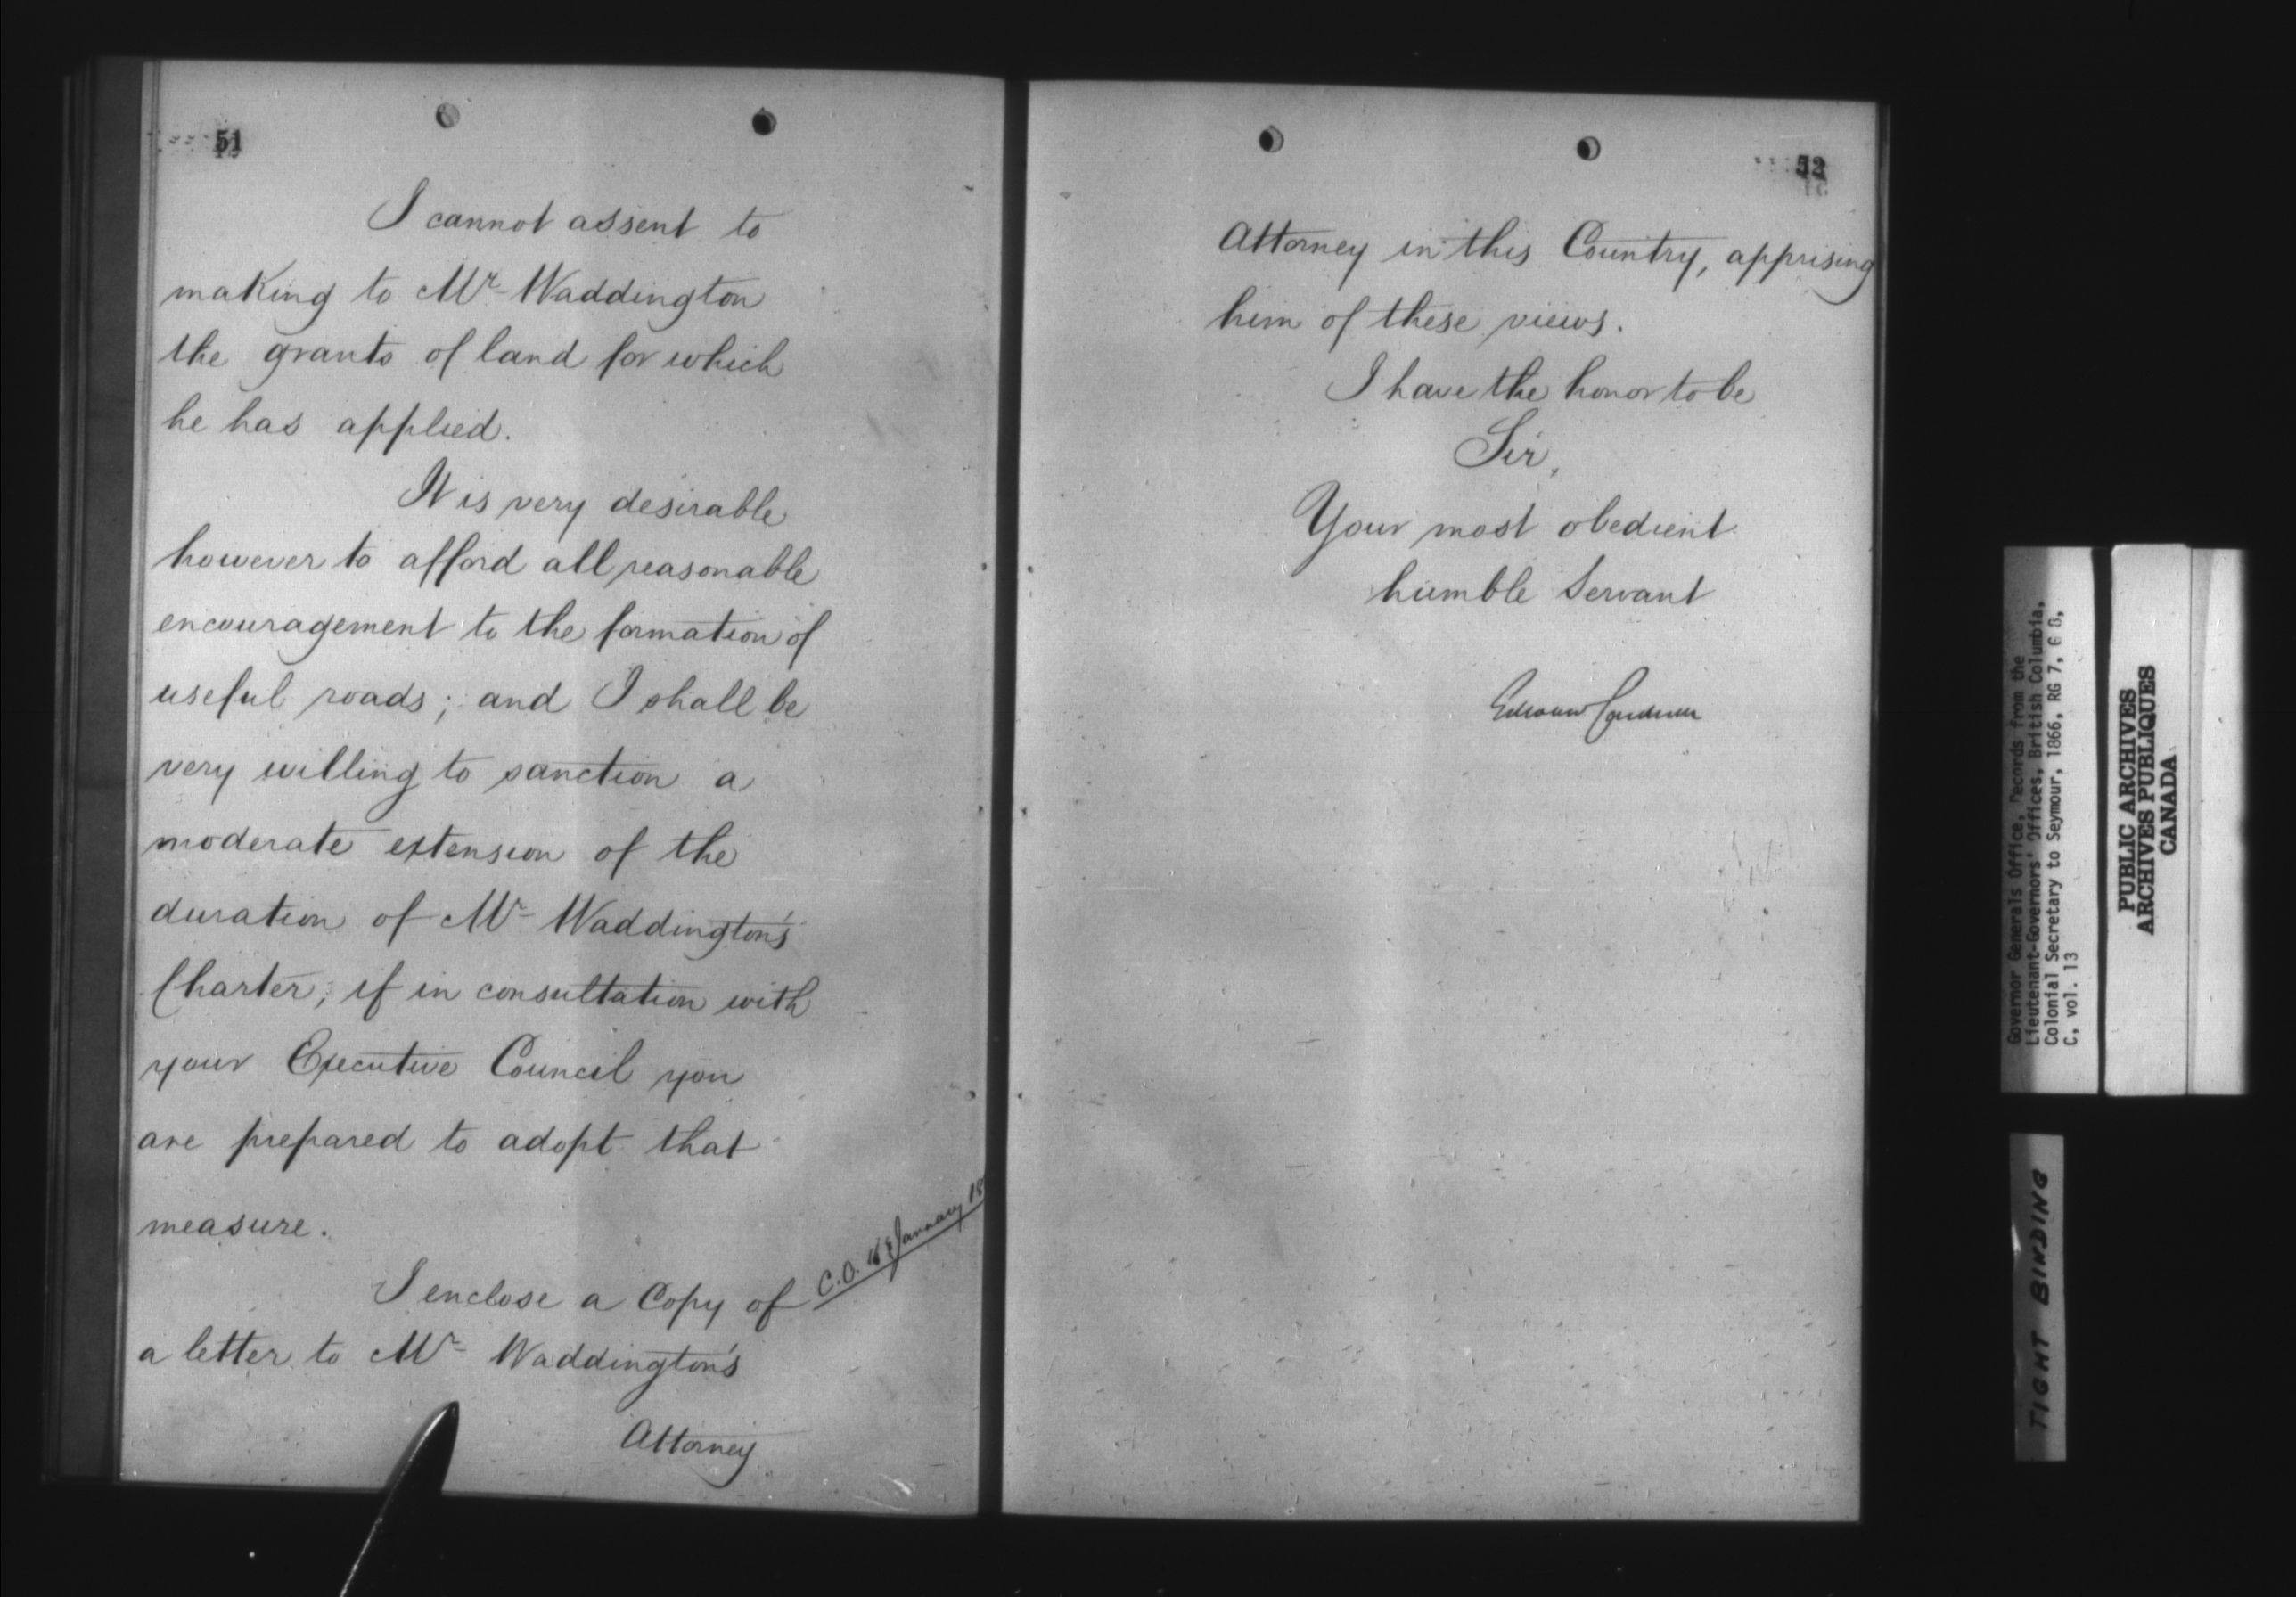 51
I cannot assent to
making to Mr Waddington
the grants of land for which
he has applied.
It is very desirable
however to afford all reasonable
encouragement to the formation of
useful roads; and I shall be
very willing to sanction a
moderate extension of the
duration of Mr Waddington's
Charter, if in consultation with
your Executive Council you
are prepared to adopt that
measure.
I enclose a Copy of
C.O. January 18
a letter to Mr Waddington's
Attorney
52
Attorney in this Country, apprising
him of these views.
I have the honor to be
Sir,
Your most obedient
humble Servant
Edward Cardwell
Governor Generals Office, Records from the
Lieutenant-Governors' Offices, British Columbia,
Colonial Secretary to Seymour, 1866, RG 7, G 8,
C, vol. 13
PUBLIC ARCHIVES
ARCHIVES PUBLIQUES
CANADA
TIGHT BINDING